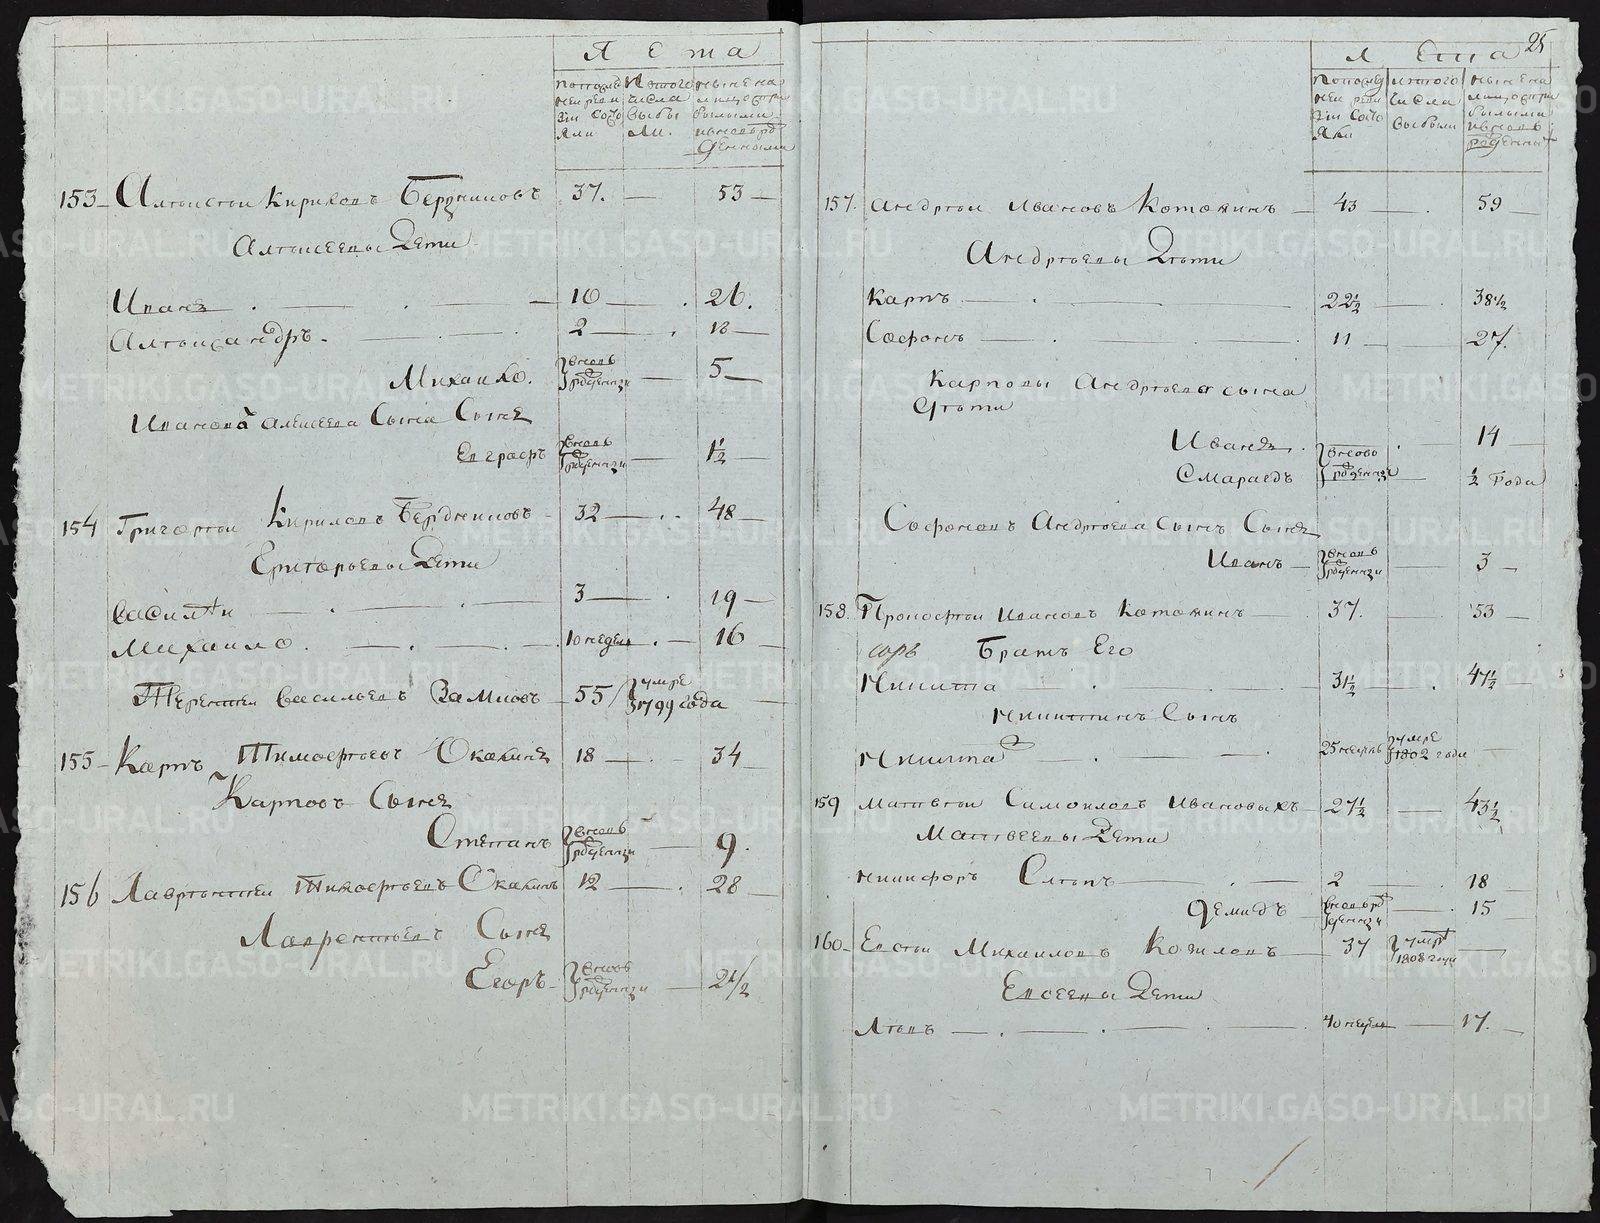 Лета
По послѣд ней реви зіи состо яли
Изтого числа выбы ли.
Ныне на лицо с при былыми и вновь рож денными
153 Алѣксѣй Кириловъ Бердниковъ 37. — 53
Алѣксеевы Дети
Иванъ 10 — 26.
Алѣксандръ. 2 — 18
Михаило. вновь рожденны — 5
Ивановъ Алексеева Сына Сынъ
Евграфъ вновь рожденны — 1½
154 Григорѣй Кириловъ Бердниковъ 32 — 48
Григорьевы Дети
Василѣй 3 — 19
Михаило. 10 недель — 16
Терентей Васильевъ 55 умре 1799 года
155 Карпъ Тимофѣевъ Окалинъ 18 — 34
Карповъ Сынъ
Степанъ вновь рожденны — 9.
156 Лаврѣнтей Тимофѣевъ Окалинъ 12 — 28
Лаврентьевъ Сынъ
Егоръ вновь рожденны — 2½
25
Лета
По послед ней реви зіи состо яли
изтого числа выбыли
ныне на лицо с при былыми и вновь рожденны
157. Андрѣй Ивановъ Котюкинъ 43 — 59
Андрѣевы Дѣти
Карпъ 22½ — 38½
Софонъ 11 — 27.
Карповы Андрѣевы сына
дѣти
Иванъ 14
Смарагдъ вновь рожденны ½ Года
Софоновъ Андрѣева Сынъ Сынъ
Иванъ вновь рожденны — 3
158. Прокофѣй Ивановъ Котюкинъ 37. 53
Братъ Его
Никита 31½ 47½
Никитинъ Сынъ
Никита 25 недель умре 1802 года
159 Матвѣй Самоиловъ Ивановыхъ 27½ — 43½
Матвеевы Дети
Никифоръ Слѣпъ 2 18
Демидъ вновь рожденны 15
160 Евсѣй Михаиловъ Козиловъ 37 умре 1808 года
Евсеевы Дети
Лѣвъ 40 недель — 17.
METRIKI.GASO-URAL.RU